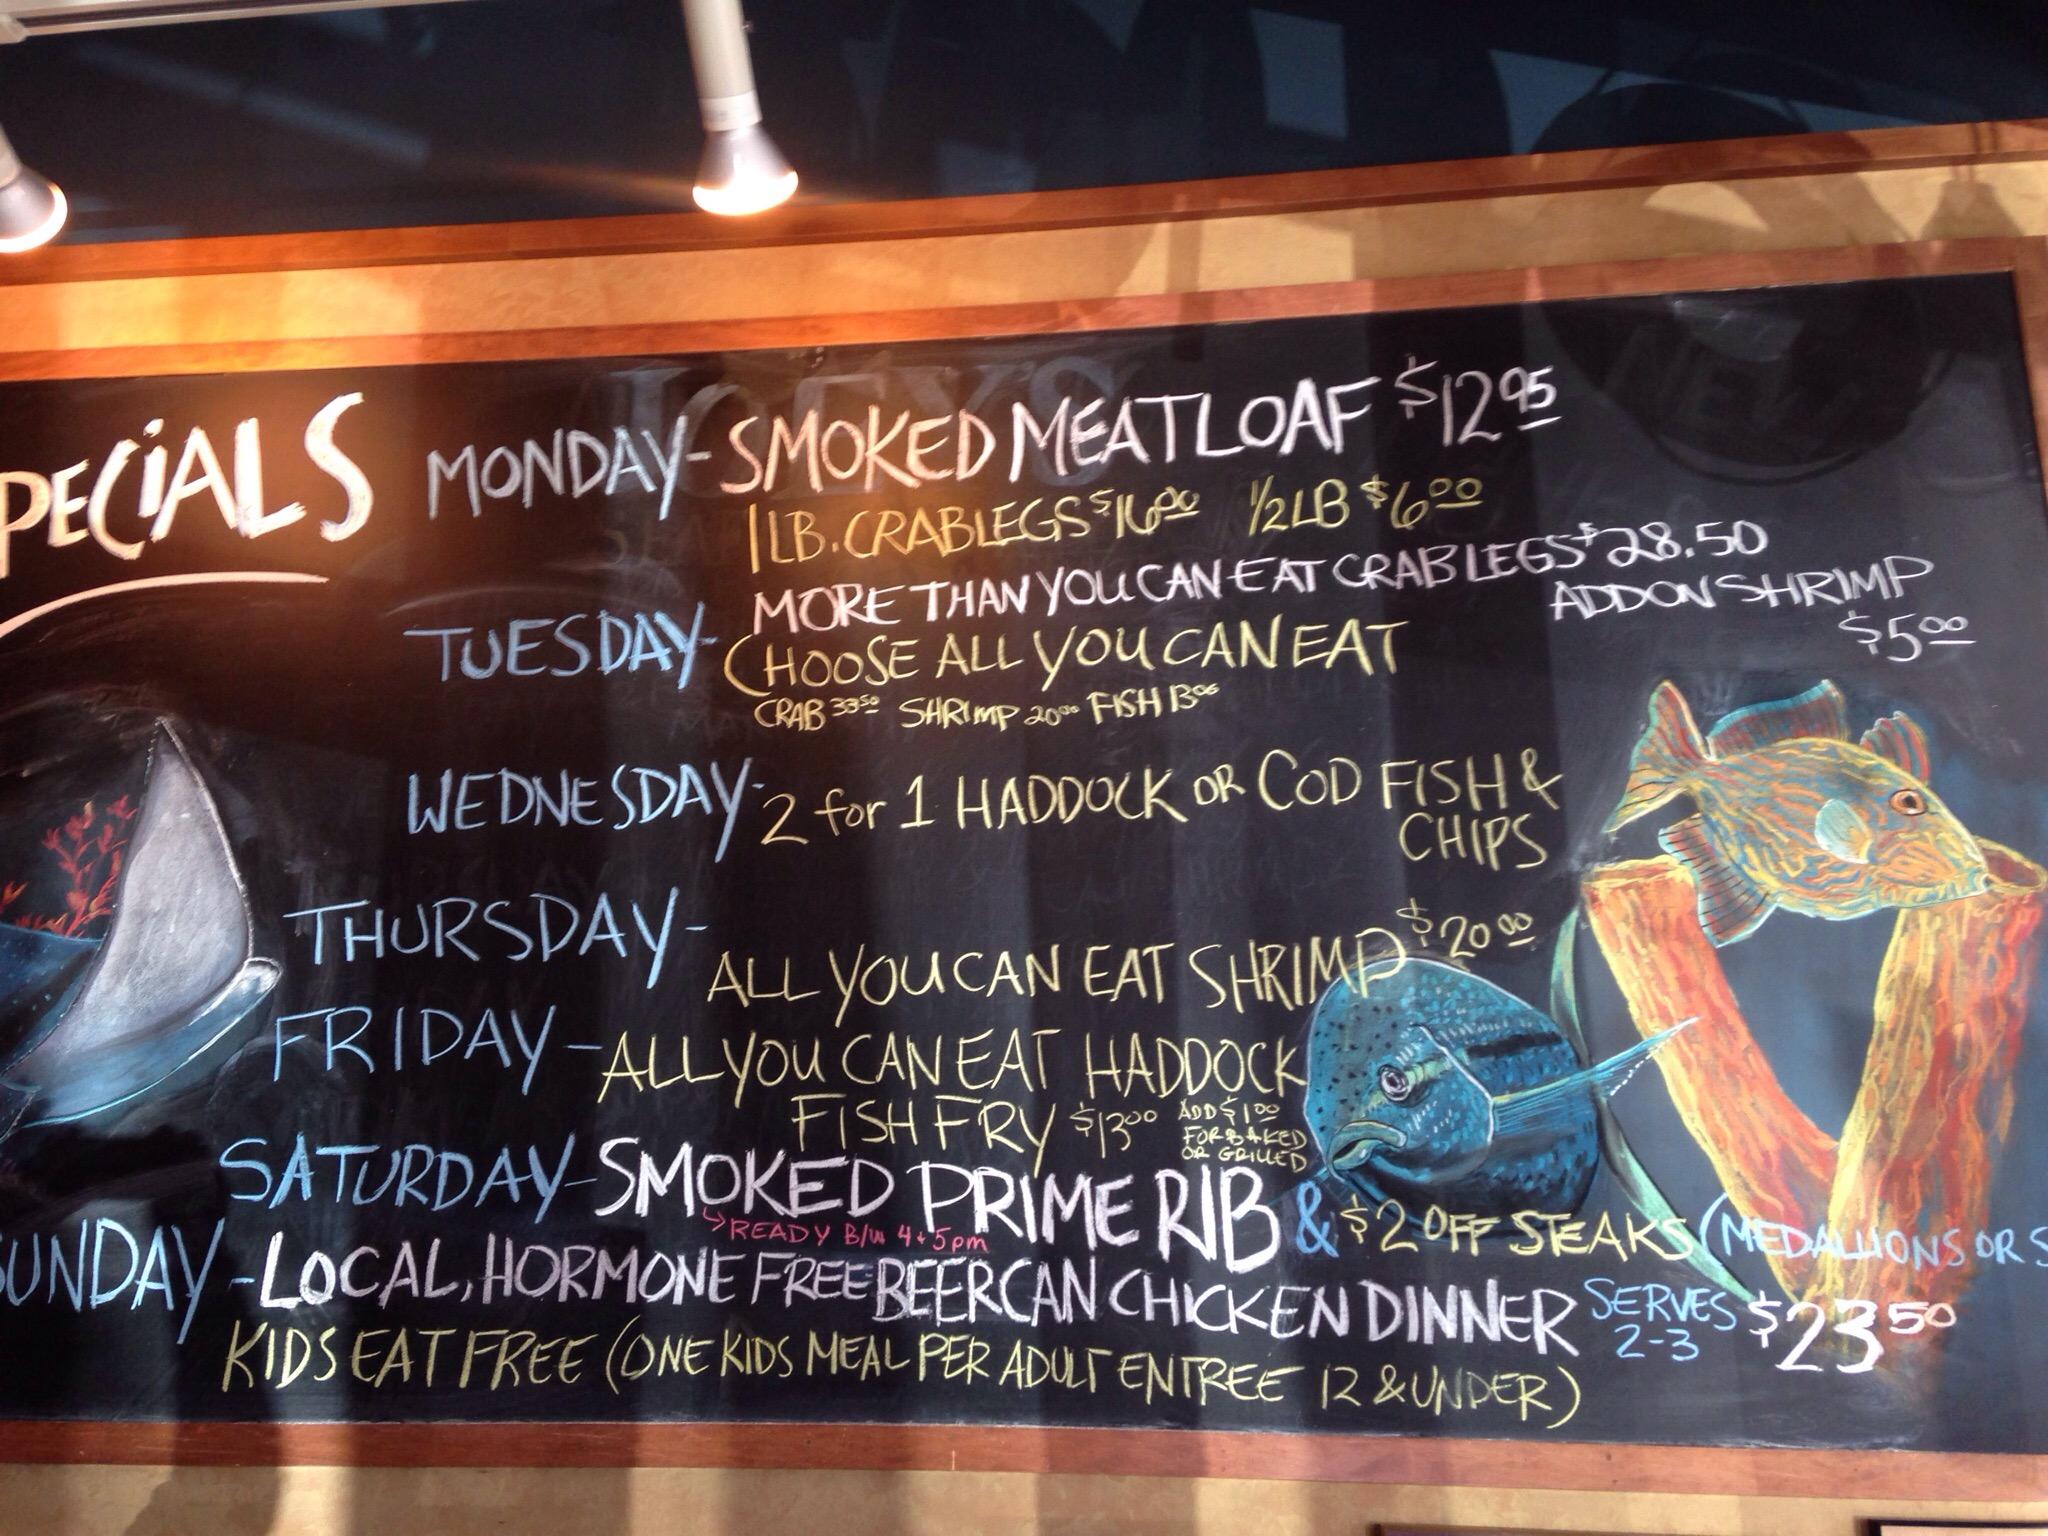 PECIALS
MONDAY- SMOKED MEATLOAF $12.95
1 LB. CRAB LEGS $16.00 1/2 LB $6.00
MORE THAN YOU CAN EAT CRAB LEGS $28.50
ADD ON SHRIMP
$5.00
TUESDAY- CHOOSE ALL YOU CAN EAT
CRAB 33.50 SHRIMP 20.00 FISH 13.00
WEDNESDAY- 2 for 1 HADDOCK OR COD FISH &
CHIPS
THURSDAY-
ALL YOU CAN EAT SHRIMP $20.00
FRIDAY- ALL YOU CAN EAT HADDOCK
FISH FRY $13.00 ADD $1.00
FOR BAKED
OR GRILLED
SATURDAY- SMOKED PRIME RIB & $2 OFF STEAKS (MEDALLIONS OR S
READY B/w 4+5pm
SUNDAY- LOCAL, HORMONE FREE BEERCAN CHICKEN DINNER SERVES
2-3 $23.50
KIDS EAT FREE (ONE KIDS MEAL PER ADULT ENTREE 12 & UNDER)